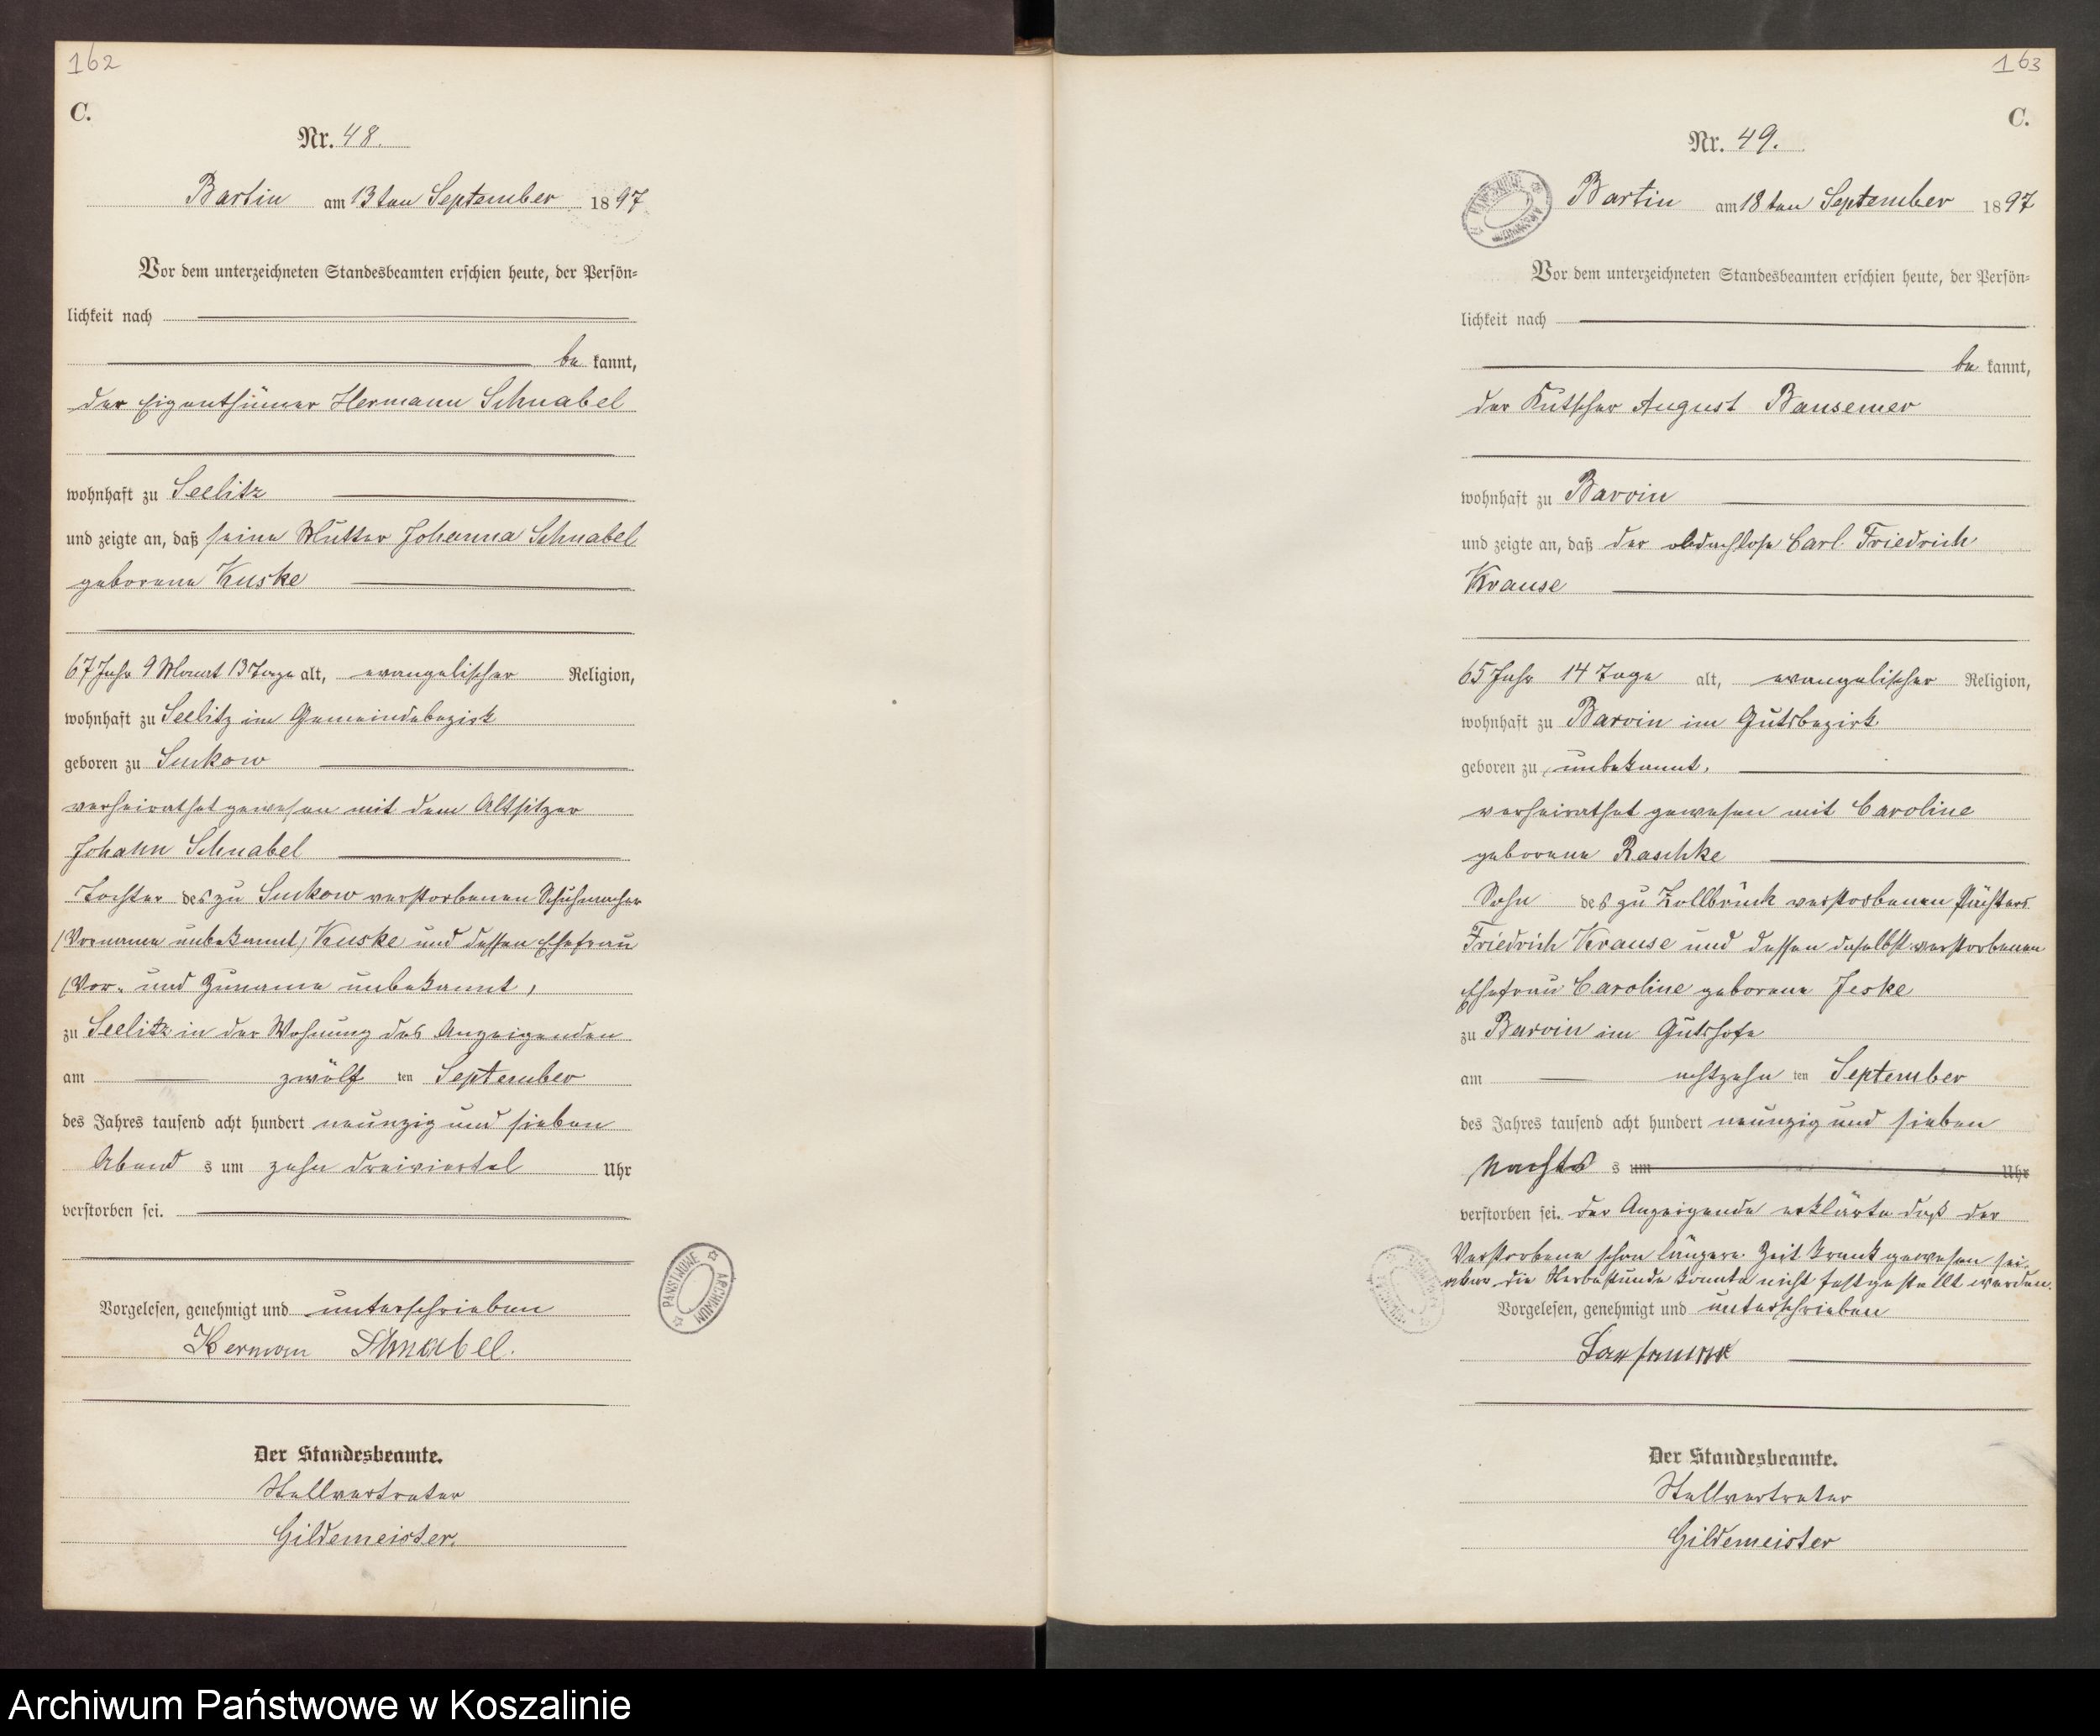 162
C.
Nr. 48.
Bartin am 13ten September 1897
Vor dem unterzeichneten Standesbeamten erschien heute, der Persön-
lichkeit nach
be kannt,
der Eigenthümer Hermann Schnabel
wohnhaft zu Seelitz
und zeigte an, daß seine Mutter Johanna Schnabel
geborene Kuske
67 Jahr 9 Monat 13 Tage alt, evangelischer Religion,
wohnhaft zu Seelitz im Gemeindebezirk
geboren zu Suckow
verheirathet gewesen mit dem Altsitzer
Johann Schnabel
Tochter des zu Suckow verstorbenen Schuhmacher
(Vorname unbekannt) Kuske und dessen Ehefrau
(Vor- und Zuname unbekannt)
zu Seelitz in der Wohnung des Anzeigenden
am zwölf ten September
des Jahres tausend acht hundert neunzig und sieben
Abend s um zehn dreiviertel Uhr
verstorben sei.
Vorgelesen, genehmigt und unterschrieben
Herman Schnabel.
Der Standesbeamte.
Stellvertreter
Gildemeister.
PAŃSTWOWE ARCHIWUM
163
C.
Nr. 49.
Bartin am 18ten September 1897
Vor dem unterzeichneten Standesbeamten erschien heute, der Persön-
lichkeit nach
be kannt,
der Kutscher August Bansemer
wohnhaft zu Barvin
und zeigte an, daß der obdachlose Carl Friedrich
Krause
65 Jahr 14 Tage alt, evangelischer Religion,
wohnhaft zu Barvin im Gutsbezirk
geboren zu unbekannt.
verheirathet gewesen mit Caroline
geborene Raschke
Sohn des zu Zollbrück verstorbenen Pächters
Friedrich Krause und dessen daselbst verstorbenen
Ehefrau Caroline geborene Jeske
zu Barvin im Gutshofe
am achtzehn ten September
des Jahres tausend acht hundert neunzig und sieben
Nachts s um Uhr
verstorben sei. Der Anzeigende erklärte daß der
Verstorbene schon längere Zeit krank gewesen sei,
aber die Sterbestunde konnte nicht festgestellt werden.
Vorgelesen, genehmigt und unterschrieben
Der Standesbeamte.
Stellvertreter
Gildemeister
Archiwum Państwowe w Koszalinie